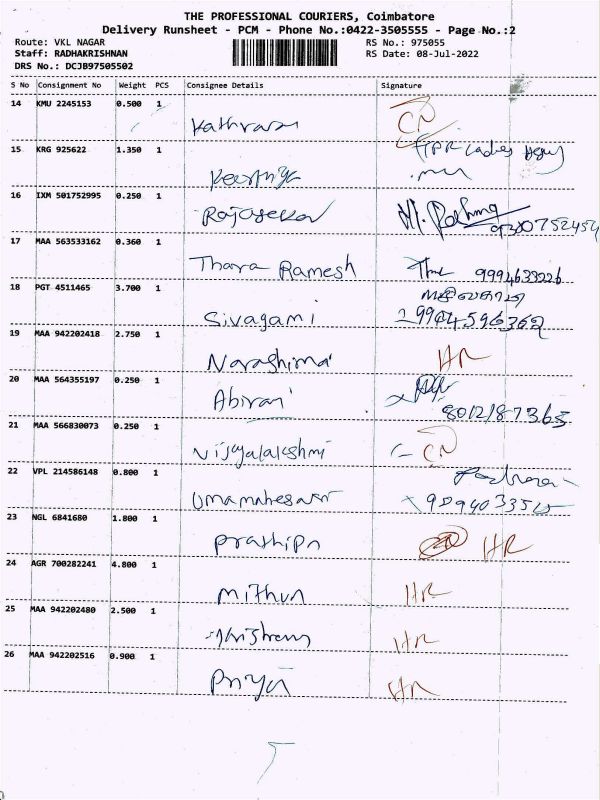 THE PROFESSIONAL COURIERS, Coimbatore
Delivery Runsheet - PCM - Phone No.:0422-3505555 - Page No.:2
Route: VKL NAGAR RS No.: 975055
Staff: RADHAKRISHNAN RS Date: 08-Jul-2022
DRS No.: DCJB97505502
S No Consignment No Weight PCS Consignee Details Signature
14 KMU 2245153 0.500 1 CN
15 KRG 925622 1.350 1
16 IXM 501752995 0.250 1 Rajasekar
17 MAA 563533162 0.360 1 Thara Ramesh 9994633226
18 PGT 4511465 3.700 1 Sivagami
19 MAA 942202418 2.750 1 Narashima HR
20 MAA 564355197 0.250 1 Abirami
21 MAA 566830073 0.250 1 Vijayalakshmi CN
22 VPL 214586148 0.800 1 Umamaheswari
23 NGL 6841680 1.800 1 HR
24 AGR 700282241 4.800 1 Mithun HR
25 MAA 942202480 2.500 1 HR
26 MAA 942202516 0.900 1 Priya HR